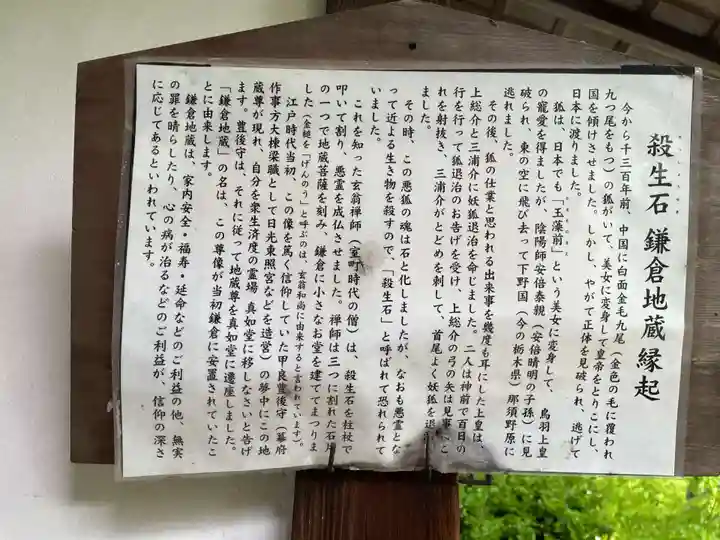 殺生石 鎌倉地蔵縁起
今から千三百年前、中国に白面金毛九尾(金色の毛に覆われ
九つ尾をもつ)の狐がいて、美女に変身して皇帝をとりこにし、
国を傾けさせました。しかし、やがて正体を見破られ、逃げて
日本に渡りました。
狐は、日本でも「玉藻前」という美女に変身して、鳥羽上皇
の寵愛を得ましたが、陰陽師安倍泰親(安倍晴明の子孫)に見
破られ、東の空に飛び去って下野国(今の栃木県)那須野原に
逃れました。
その後、狐の仕業と思われる出来事を幾度も耳にした上皇は、
上総介と三浦介に妖狐退治を命じました。二人は神前で百日の
行を行って狐退治のお告げを受け、上総介の弓の矢は見事
れを射抜き、三浦介がとどめを刺して、首尾よく妖狐を退
ました。
その時、この悪狐の魂は石と化しましたが、なおも悪霊とな
って近よる生き物を殺すので、「殺生石」と呼ばれて恐れられて
いました。
これを知った玄翁禅師(室町時代の僧)は、殺生石を柱杖で
叩いて割り、悪霊を成仏させました。禅師は三つに割れた石片
の一つで地蔵菩薩を刻み、鎌倉に小さなお堂を建ててまつりま
した(金槌を「げんのう」と呼ぶのは、玄翁和尚に由来すると言われています)。
江戸時代当初、この像を篤く信仰していた甲良豊後守(幕府
作事方大棟梁職として日光東照宮などを造営)の夢中にこの地
蔵尊が現れ、自分を衆生済度の霊場 真如堂に移しなさいと告げ
ます。豊後守は、それに従って地蔵尊を真如堂に遷座しました。
「鎌倉地蔵」の名は、この尊像が当初鎌倉に安置されていたこ
とに由来します。
鎌倉地蔵は、家内安全・福寿・延命などのご利益の他、無実
の罪を晴らしたり、心の病が治るなどのご利益が、信仰の深さ
に応じてあるといわれています。